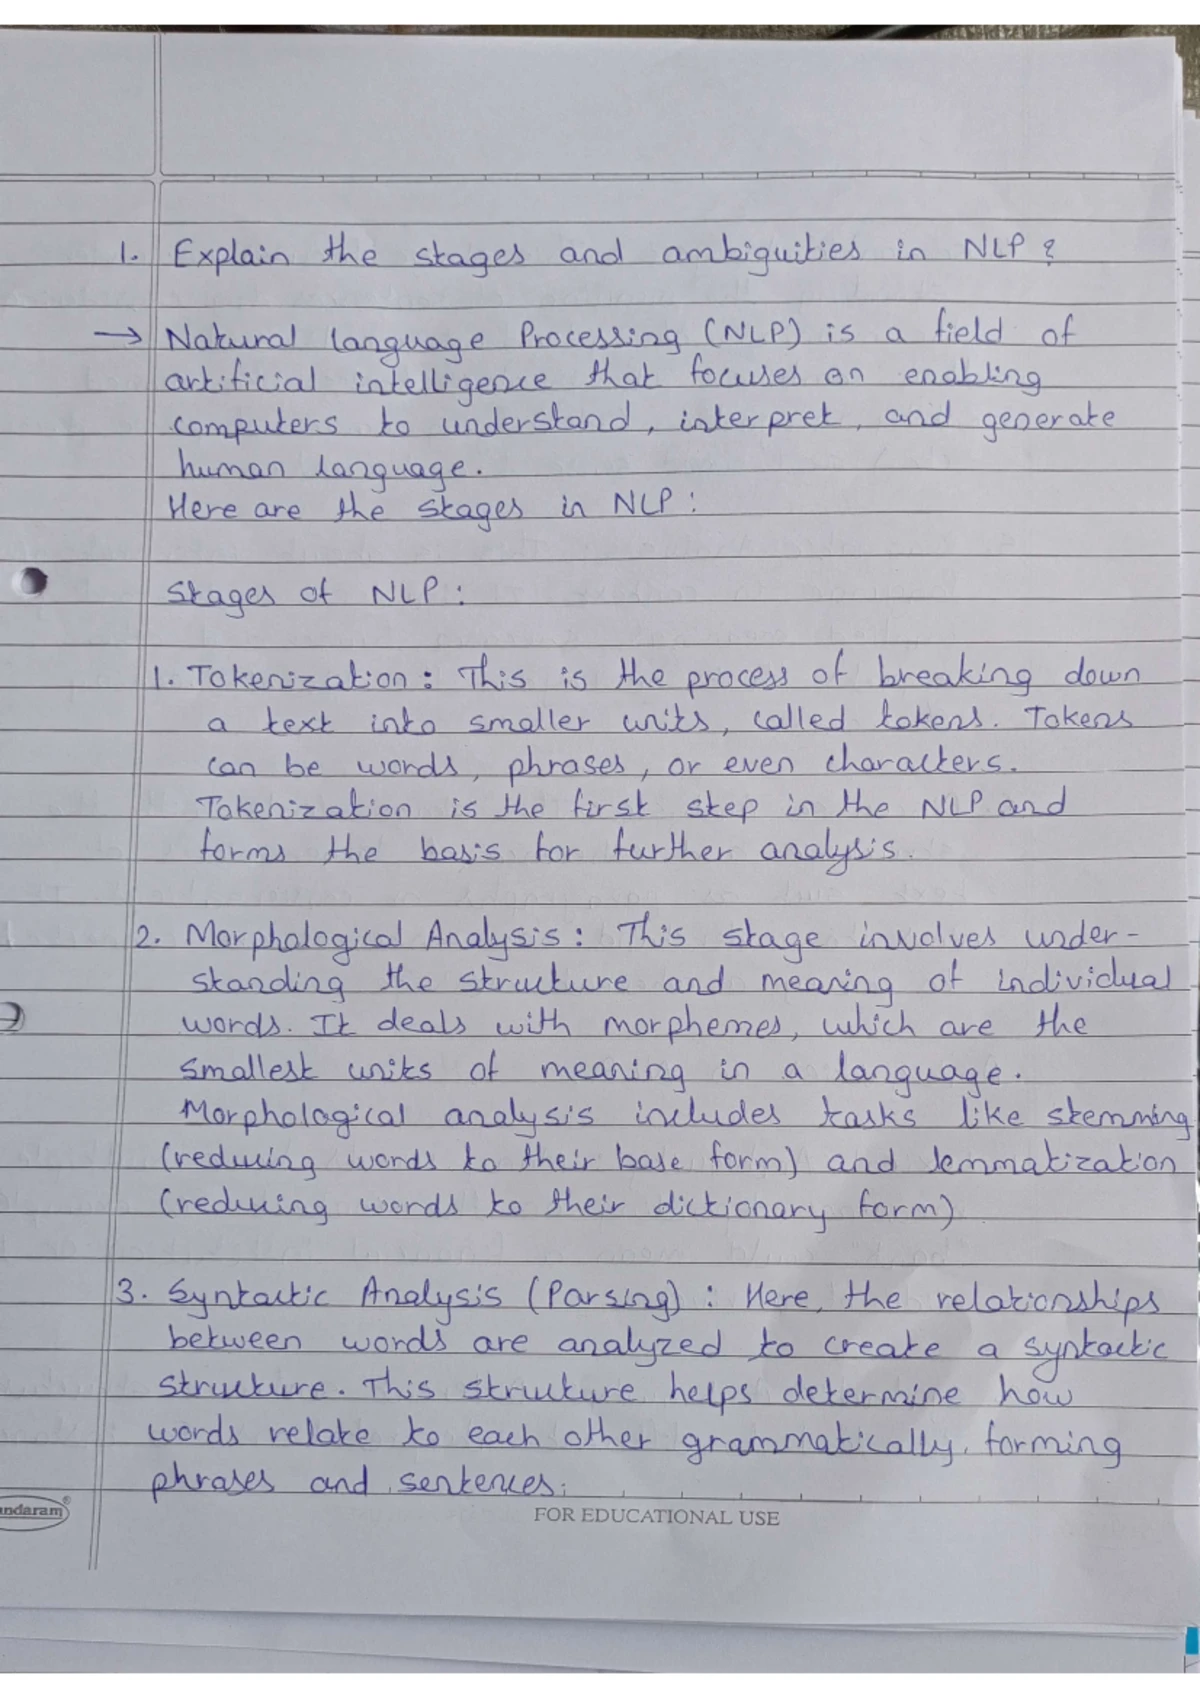 1. Explain the stages and ambiguities in NLP ?
→ Natural language Processing (NLP) is a field of
artificial intelligence that focuses on enabling
computers to understand, interpret, and generate
human language.
Here are the stages in NLP :
Stages of NLP :
1. Tokenization : This is the process of breaking down
a text into smaller units, called tokens. Tokens
can be words, phrases, or even characters.
Tokenization is the first step in the NLP and
forms the basis for further analysis.
2. Morphological Analysis : This stage involves under-
standing the structure and meaning of individual
words. It deals with morphemes, which are the
smallest units of meaning in a language.
Morphological analysis includes tasks like stemming
(reducing words to their base form) and lemmatization
(reducing words to their dictionary form)
3. Syntactic Analysis (Parsing) : Here, the relationships
between words are analyzed to create a syntactic
structure. This structure helps determine how
words relate to each other grammatically, forming
phrases and sentences.
ndaram®
FOR EDUCATIONAL USE